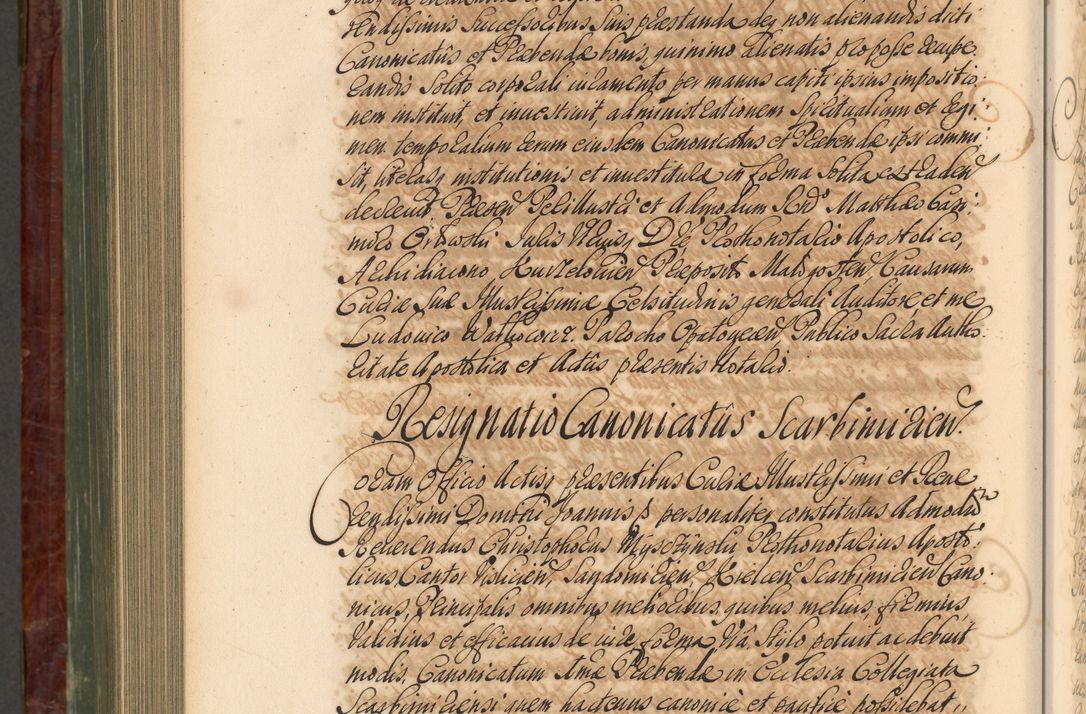 rendissimis Successoribus suis præstanda deq́ non alienandis dicti
Canonicatus et Præbendæ bonis, quinimo alienatis pro posse recupe:
randis solito corporali iuramento per manus capiti ipsius impositio:
nem instituit, et investivit, administrationem Spiritualium et Regi:
men temporalium rerum eiusdem Canonicatus et Præbendæ ipsi commi:
sit, literasq́ institutionis et investituræ in forma solita extraden̄
decrevit. Præsen̄ Perillustri et Admodum Rn̄d. Matthæo Casi:
miro Prothonotario Apostolico,
Archidiacono, Præposito Causarum
Curiæ Suæ Illustrissimæ Celsitudinis generali Auditore et me
Ludovico Parocho Opatovicen̄, Publico Sacra Autho:
ritate Apostolica et Actûs præsentis Notario.
Resignatio Canonicatûs Scarbimirien̄.
Coram Officio Actisq́ præsentibus Curiæ Illustrissimi et Reve
rendissimi Domini Joannis p̄ personaliter constitutus Admodum
Reverendus Christophorus Prothonotarius Aposto:
licus Cantor Vislicien̄, Sandomirien̄, Kielcen̄ Scarbimirien̄ Cano:
nicus, Principalis omnibus melioribus, quibus melius, firmius,
validius et efficacius de iure, forma, viâ, stylo potuit ac debuit
modis, Canonicatum Præbendæ in Ecclesia Collegiata
Scarbimiriensi quem hactenus canonicè et pacificè possidebat